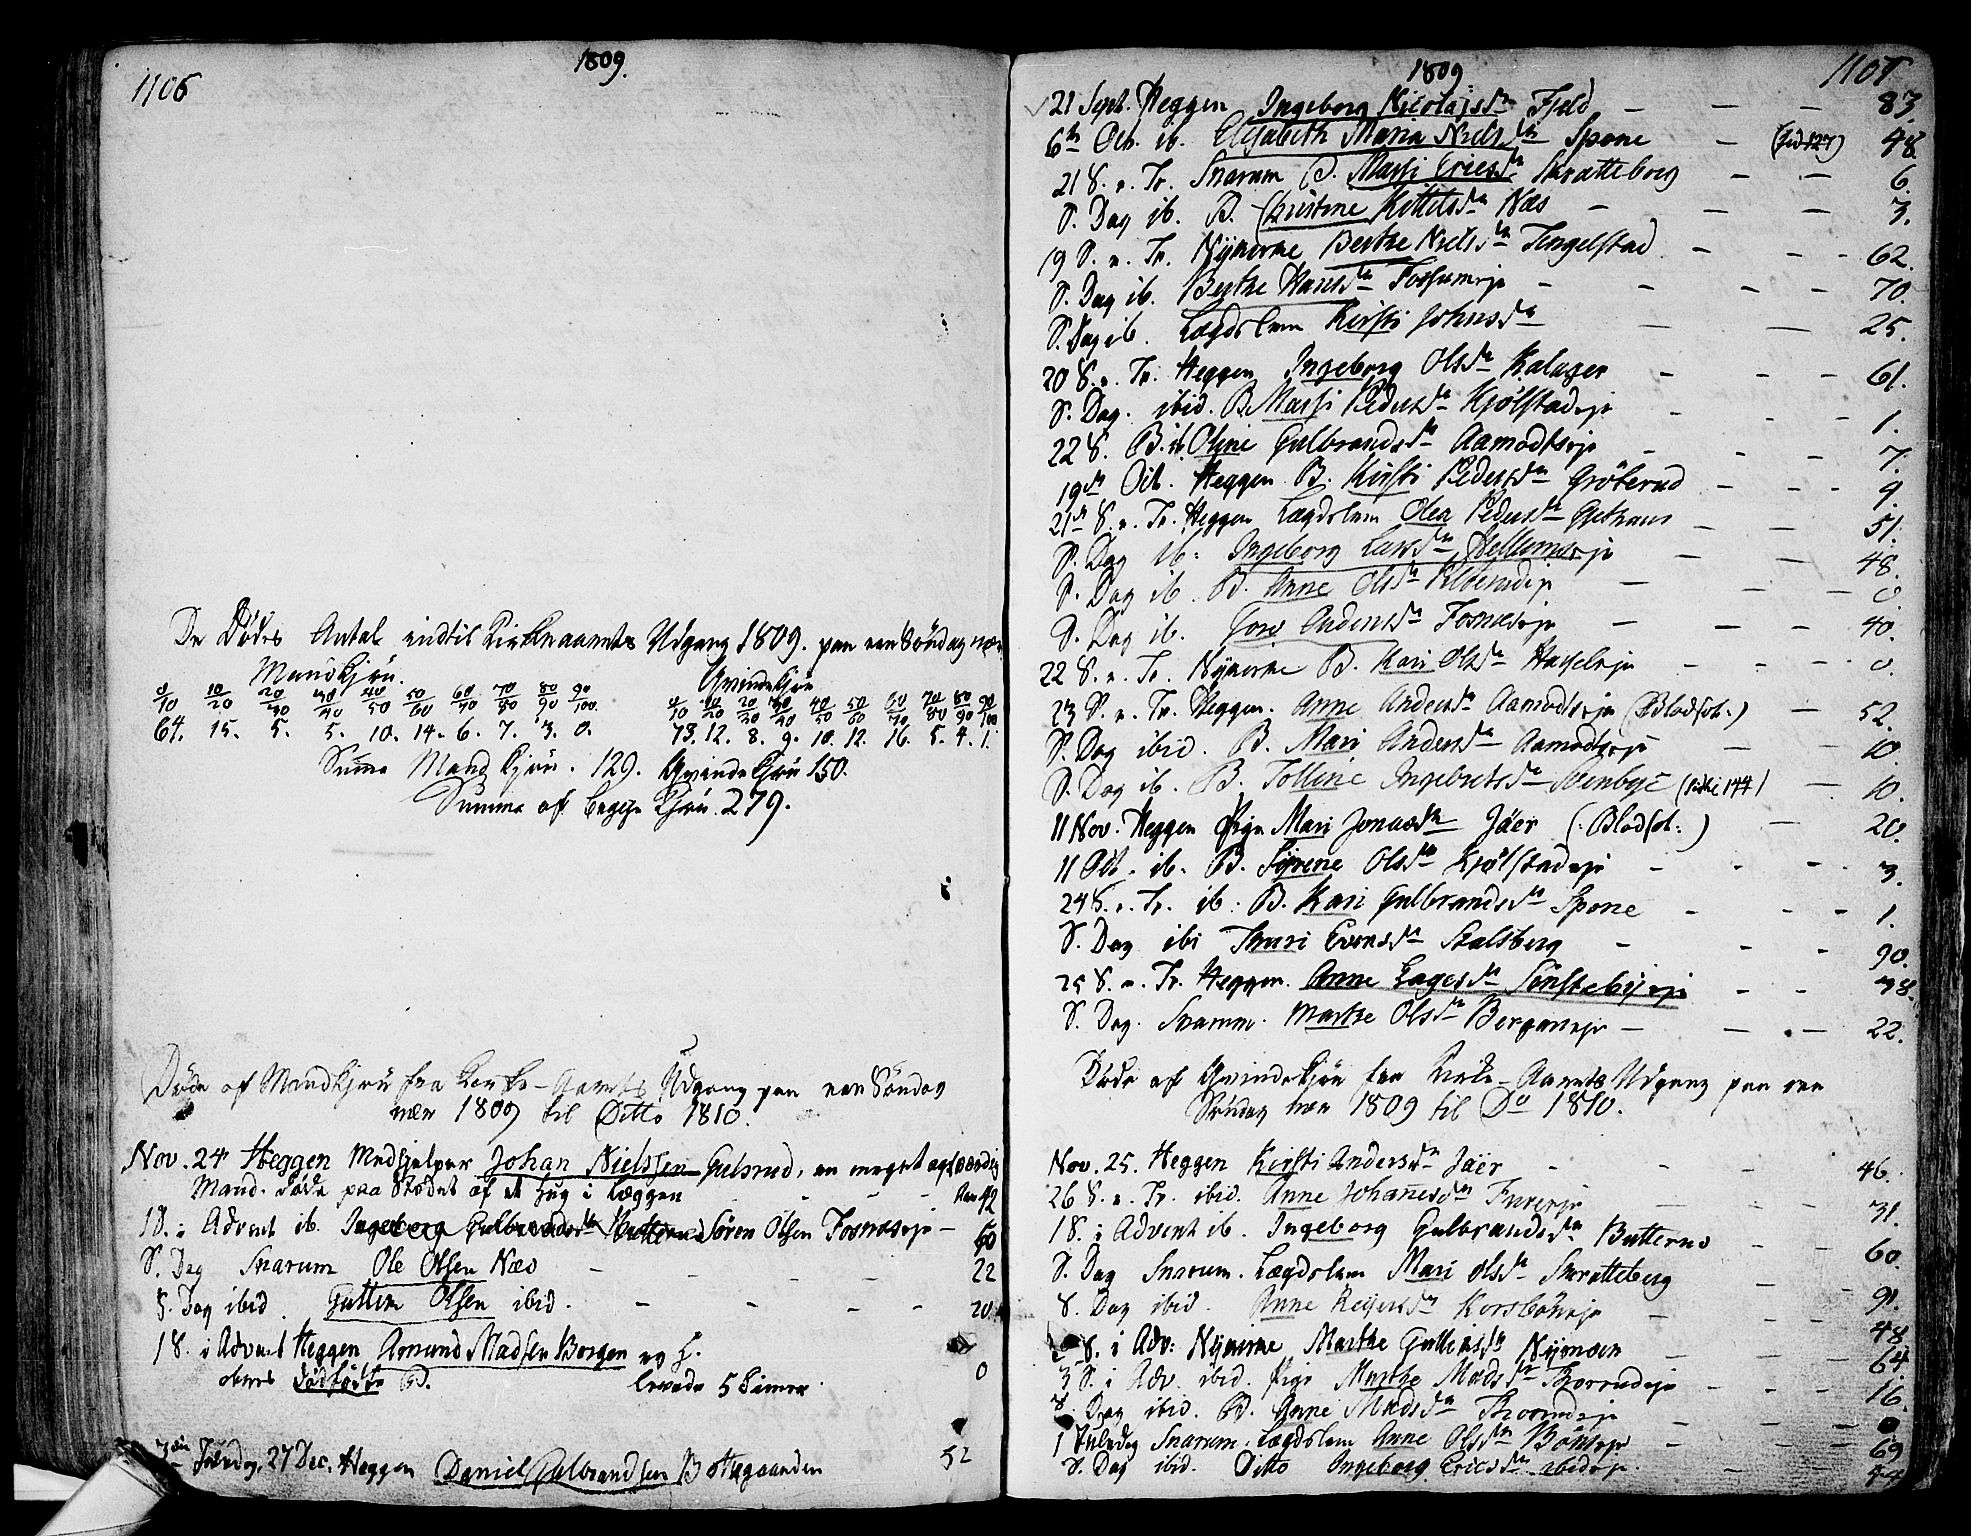 1106
1809.
De Dødes Antal indtil Kirkeaarets Udgang 1809. paa een Søndag nær.
Mandkjøn.
0/10 10/20 20/30 30/40 40/50 50/60 60/70 70/80 80/90 90/100
64. 15. 5. 5. 10. 14. 6. 7. 3. 0.
Qvindekjøn
0/10 10/20 20/30 30/40 40/50 50/60 60/70 70/80 80/90 90/100
73. 12. 8. 9. 10. 12. 16. 5. 4. 1.
Summa Mandkjøn. 129. Qvindekjøn 150.
Summa af begge Kjøn. 279.
Døde af Mandkjøn fra Kirke-Aarets Udgang paa een Søndag
nær 1809 til Ditto 1810.
Nov. 24 Heggen Medhjelper Johan Nielssen Gulsrud, en meget agtværdig
Mand. døde paa Stædet af et Hug i Læggen - - - Aar 42
1 S. i Advent ib. Søren Olsen Fosnæseje - 60
S. Dag Snarum Ole Olsen Næs - - - - 22
S. Dag ibid. Guttem Olsen ibid. - - - - 20
1 S. i Advent Heggen Amund Madsen Borgen
dødfødte B. levede 5 Timer 0
27 Dec. Heggen Daniel Gulbrandsen 52
1809
1107
21 Sept. Heggen Ingeborg Nicolajsdr Fjeld - - - 83.
6te Oct. ib. Elisabeth Maria Nielsdr Spone - 48.
21 S. e. Tr. Snarum B. Massi Ericsdr Skratteborg - - 6.
S. Dag ib. B. Christine Kittelsdr Næs - - - 3.
19 S. e. Tr. Nykirke Berthe Nielsdr Tingelstad - - - 62.
S. Dag ib. Berthe Hansdr Fossumeje - - - - 70.
S. Dag ib. Lægdslem Kirsti Johnsdr - - 25.
20 S. e. Tr. Heggen Ingeborg Olsdr Kalager - - - 61.
S. Dag. ibid. B. Massi Pedersdr Kjølstadeje - - - 1.
22 S. B. ib. Oline Gulbrandsdr Aamodtseje - - - 7.
19de Oct. Heggen B. Kirsti Pedersdr Grøterud - - - 9.
21de S. e. Tr. Heggen Lægdslem Olea Pedersdr Gjethuus - - - 51.
S. Dag ib. Ingeborg Larsdr Hellumseje - - 48.
S. Dag ib. B. Anne Olsdr - - 0
S. Dag ib. Anders dr Fosnæseje - - - 40.
22 S. e. Tr. Nykirke B. Kari Olsdr Hasseleje - - - 0.
23 S. e. Tr. Heggen. Anne Andersdr Aamodtseje (Blodsot.) - 52.
S. Dag ibid. B. Mari Andersdr Aamodtseje - - 10.
S. Dag ib. B. Tolline Ingebretsdr Steenbye - 10.
11 Nov. Heggen Pige Mari Jonasdr Jaer (: Blodsot :) - 20.
11 Oct. ib. B. Syrene Olsdr Kjølstadeje - - - 3.
24 S. e. Tr. ib. B. Kari Gulbrandsdr Spone - - - 1.
S. Dag ibi Thuri Evensdr Stalsberg - - - 90.
25 S. e. Tr. Heggen. Anne Lagesdr Sønstebyeje - - 78.
S. Dag. Snarum. Marthe Olsdr Berganeje - - - 22.
Døde af Qvindekjøn fra Kirke-Aarets Udgang paa een
Søndag nær 1809 til Do 1810.
Nov. 25. Heggen Kirsti Andersdr Jaer - - - 46.
26 S. e. Tr. ibid. Anne Johannesdr Fureeje - - - 31.
1 S. i Advent ib. Ingeborg Gulbrandsdr Butterud - - 60.
S. Dag Snarum. Lægdslem Mari Olsdr Skratteberg - - 91.
S. Dag ibid. Anne Reyersdr Korsbøneje - - 48
2 S. i Adv: Nykirke Marthe Guttemsdr Nymoen - - - 64
3 S. i Adv. ibid. Pige Marthe Madsdr Thorrudeje - - - 16.
S. Dag ibid. B. Anne Madsdr Thorrudeje - - - 0
1 Juledag Snarum. Lægdslem Anne Olsdr Bøhseje - - - 69
S. Dag ibid. Ditto Ingeborg Ericsdr ibideje. - - 44